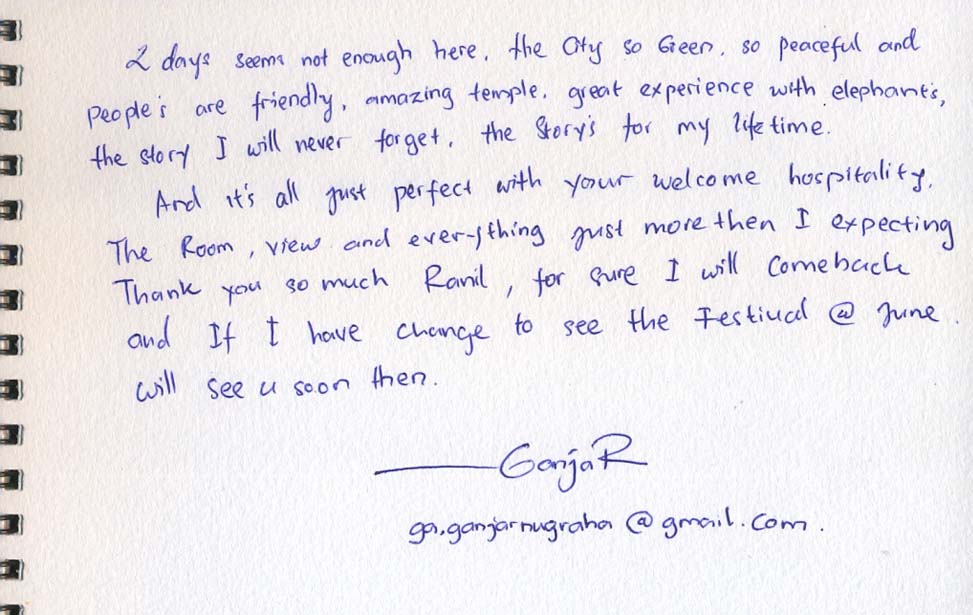 2 days seems not enough here, the City so Green, so peaceful and
people's are friendly, amazing temple. great experience with elephants,
the story I will never forget, the story's for my life time.
And it's all just perfect with your welcome hospitality.
The Room, view and everything just more then I expecting
Thank you so much Ranil, for sure I will Comeback
and If I have change to see the Festival @ June.
will see u soon then.
GanjaR
ga.ganjarnugraha @ gmail.com.